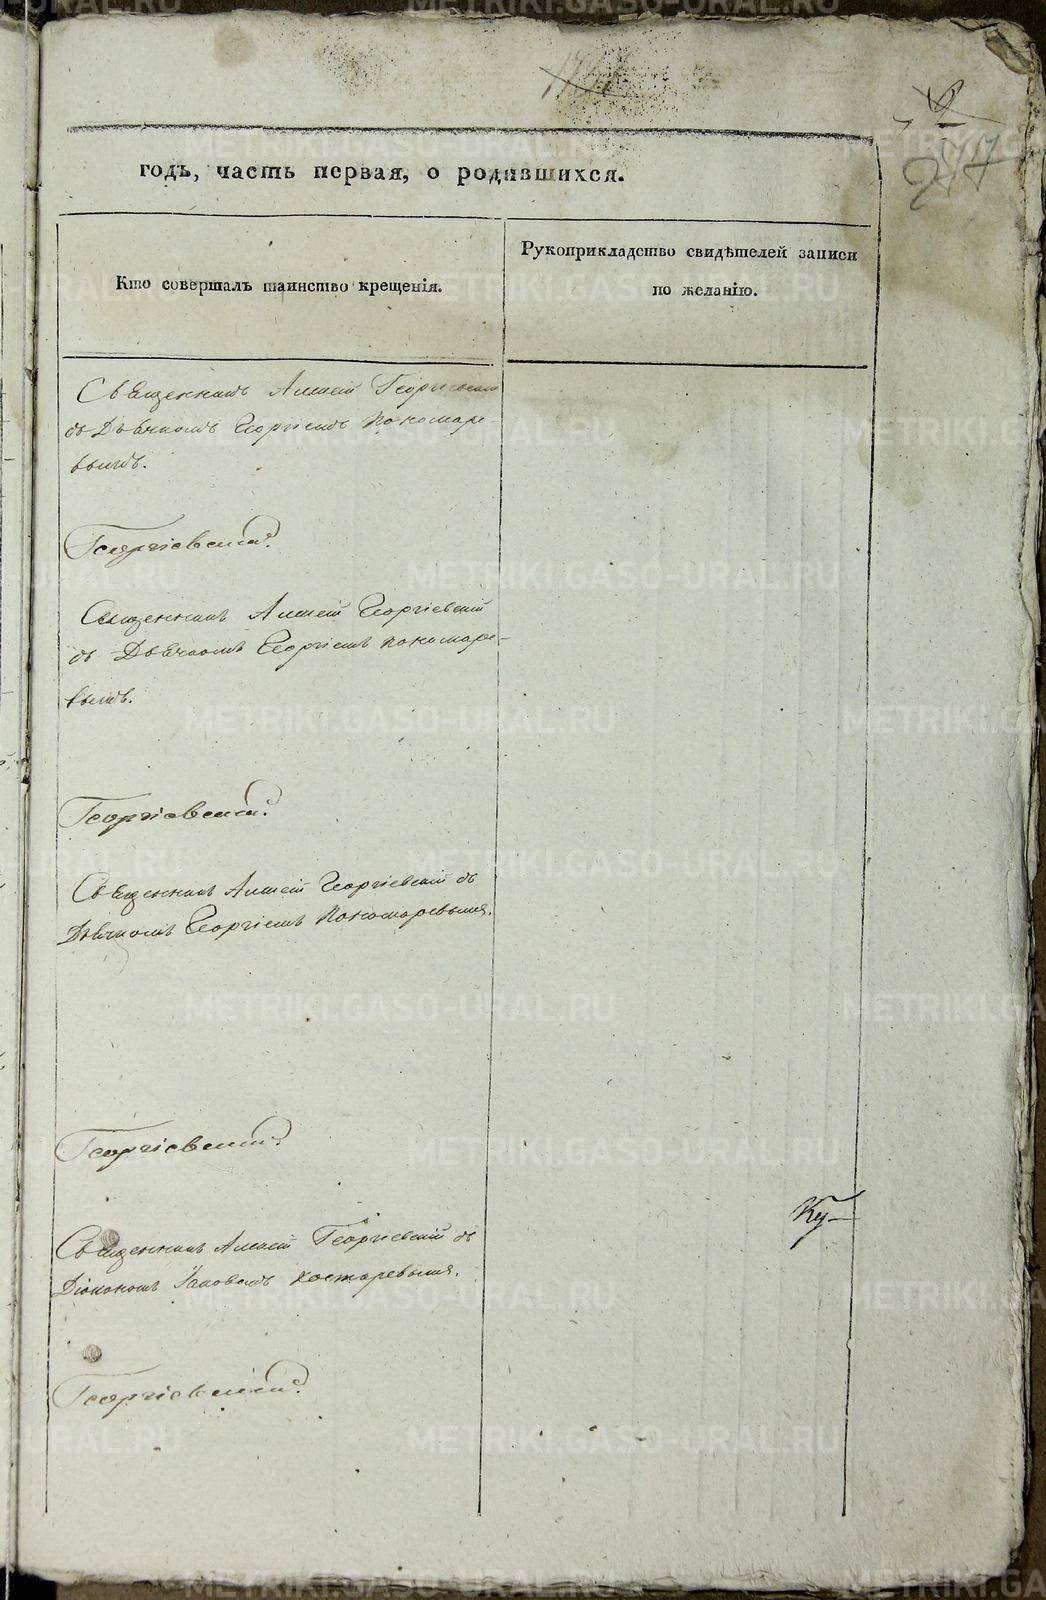 годъ, часть первая, о родившихся.
Кто совершалъ таинство крещенія.
Рукоприкладство свидѣтелей записи
по желанію.
Священникъ Алексѣй Георгіевскій
съ Дьячкомъ Георгіемъ Пономаре-
вымъ.
Георгіевскій.
Священникъ Алексѣй Георгіевскій
съ Дьячкомъ Георгіемъ Пономаре-
вымъ.
Георгіевскій.
Священникъ Алексѣй Георгіевскій съ
Дьячкомъ Георгіемъ Пономаревымъ.
Георгіевскій.
Ку-
Священникъ Алексѣй Георгіевскій съ
Діакономъ Іаковомъ Костаревымъ.
Георгіевскій.
METRIKI.GASO-URAL.RU